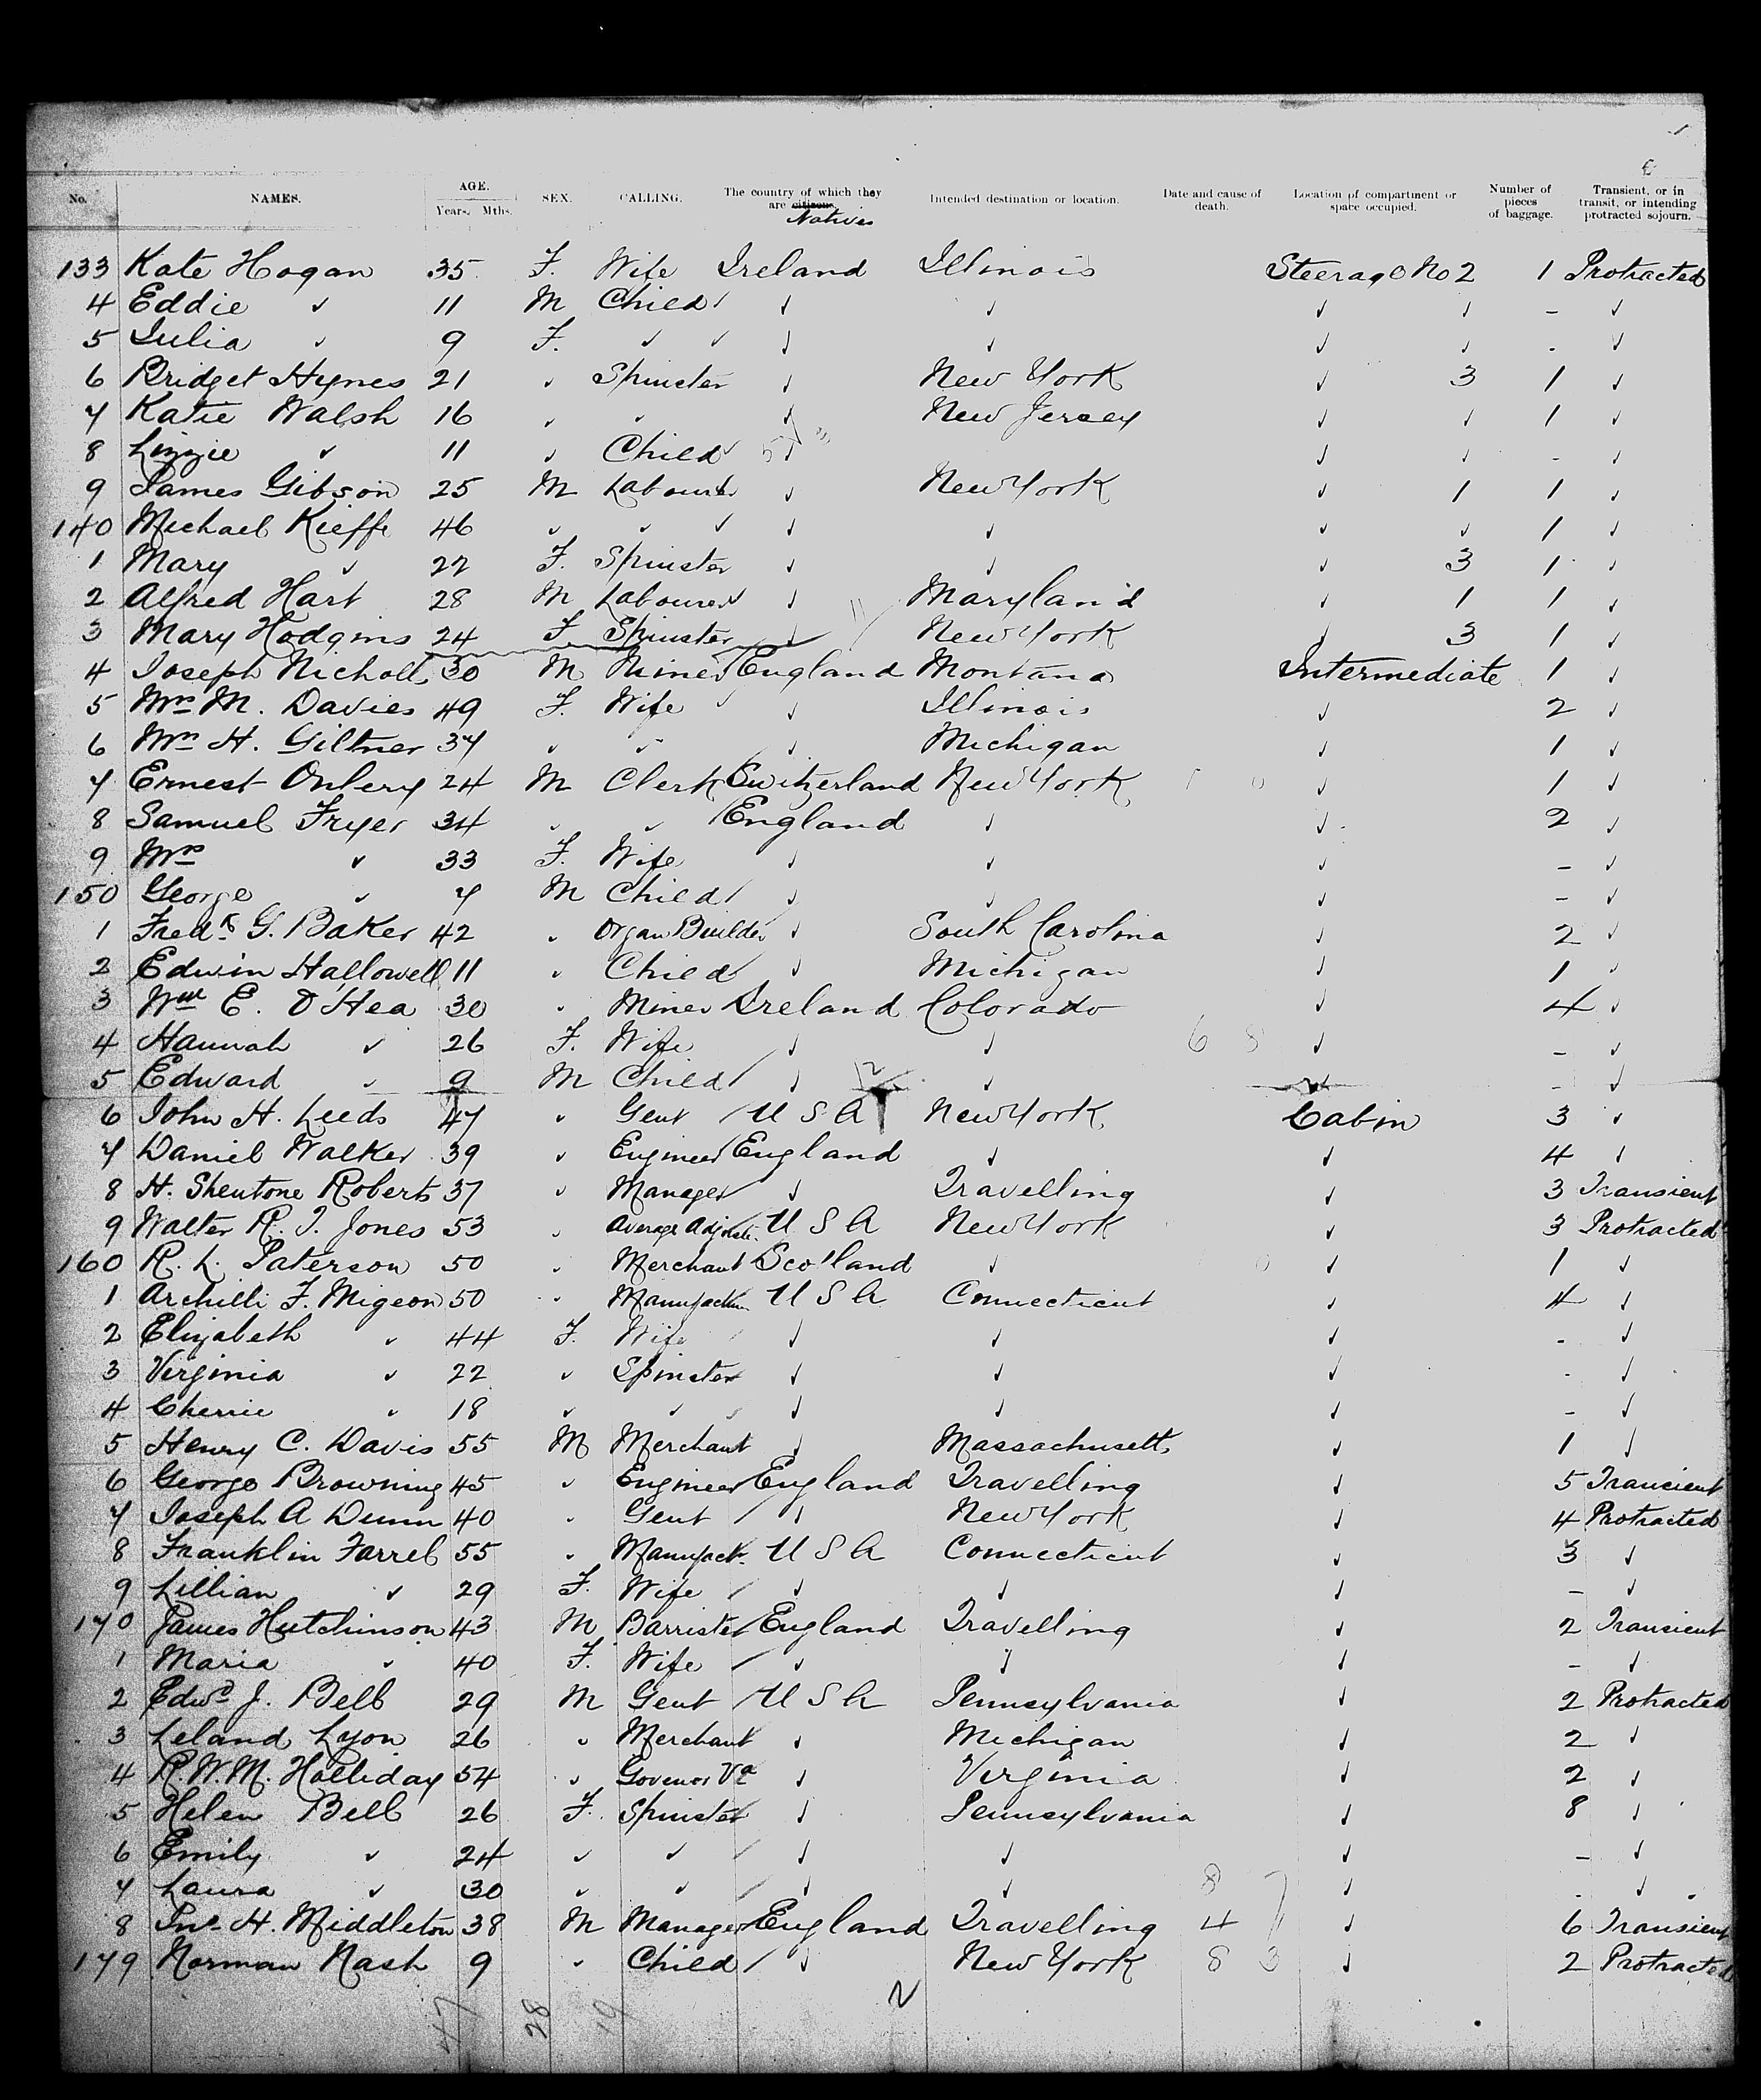 No. NAMES. AGE. Years. Mths. SEX. CALLING. The country of which they are citizens, Natives Intended destination or location. Date and cause of death. Location of compartment or space occupied. Number of pieces of baggage. Transient, or in transit, or intending protracted sojourn.
133 Kate Hogan 35 F. Wife Ireland Illinois Steerage No 2 1 Protracted
4 Eddie ✓ 11 M Child ✓ ✓ ✓ ✓ - ✓
5 Julia ✓ 9 F. ✓ ✓ ✓ ✓ ✓ - ✓
6 Bridget Hynes 21 ✓ Spinster ✓ New York ✓ 3 1 ✓
7 Katie Walsh 16 ✓ ✓ ✓ New Jersey ✓ ✓ 1 ✓
8 Lizzie ✓ 11 ✓ Child ✓ ✓ ✓ - ✓
9 James Gibson 25 M Labourer ✓ New York ✓ 1 1 ✓
140 Michael Kieffe 46 ✓ ✓ ✓ ✓ ✓ ✓ 1 ✓
1 Mary ✓ 22 F. Spinster ✓ ✓ ✓ 3 1 ✓
2 Alfred Hart 28 M Labourer ✓ Maryland ✓ 1 1 ✓
3 Mary Hodgins 24 F. Spinster ✓ New York ✓ 3 1 ✓
4 Joseph Nicholls 30 M Miner England Montana Intermediate 1 ✓
5 Mrs M. Davies 49 F. Wife ✓ Illinois ✓ 2 ✓
6 Mrs H. Giltner 37 ✓ ✓ ✓ Michigan ✓ 1 ✓
7 Ernest Onbery 24 M Clerk Switzerland New York ✓ 1 ✓
8 Samuel Fryer 34 ✓ ✓ England ✓ ✓ 2 ✓
9 Mrs ✓ 33 F. Wife ✓ ✓ ✓ - ✓
150 George ✓ 7 M Child ✓ ✓ ✓ - ✓
1 Fredk G. Baker 42 ✓ Organ Builder ✓ South Carolina ✓ 2 ✓
2 Edwin Hallowell 11 ✓ Child ✓ Michigan ✓ 1 ✓
3 Wm E. O'Hea 30 ✓ Miner Ireland Colorado ✓ 4 ✓
4 Hannah ✓ 26 F. Wife ✓ ✓ 6 8 ✓ - ✓
5 Edward ✓ 9 M Child ✓ ✓ ✓ - ✓
6 John H. Leeds 47 ✓ Gent U S A New York Cabin 3 ✓
7 Daniel Walker 39 ✓ Engineer England ✓ ✓ 4 ✓
8 H. Shentone Roberts 37 ✓ Manager ✓ Travelling ✓ 3 Transient
9 Walter R. T. Jones 53 ✓ Average Adjuster U S A New York ✓ 3 Protracted
160 R. L. Paterson 50 ✓ Merchant Scotland ✓ ✓ 1 ✓
1 Archilli F. Migeon 50 ✓ Manufactur U S A Connecticut ✓ 4 ✓
2 Elizabeth ✓ 44 F. Wife ✓ ✓ ✓ - ✓
3 Virginia ✓ 22 ✓ Spinster ✓ ✓ ✓ - ✓
4 Cherrie ✓ 18 ✓ ✓ ✓ ✓ ✓ - ✓
5 Henry C. Davis 55 M Merchant ✓ Massachusetts ✓ 1 ✓
6 George Browning 45 ✓ Engineer England Travelling ✓ 5 Transient
7 Joseph A Dunn 40 ✓ Gent ✓ New York ✓ 4 Protracted
8 Franklin Farrel 55 ✓ Manufactr U S A Connecticut ✓ 3 ✓
9 Lillian ✓ 29 F. Wife ✓ ✓ ✓ - ✓
170 James Hutchinson 43 M Barrister England Travelling ✓ 2 Transient
1 Maria ✓ 40 F. Wife ✓ ✓ ✓ - ✓
2 Edwd J. Bell 29 M Gent U S A Pennsylvania ✓ 2 Protracted
3 Leland Lyon 26 ✓ Merchant ✓ Michigan ✓ 2 ✓
4 R.W.M. Holliday 54 ✓ Govenor Va ✓ Virginia ✓ 2 ✓
5 Helen Bell 26 F. Spinster ✓ Pennsylvania ✓ 8 ✓
6 Emily ✓ 24 ✓ ✓ ✓ ✓ ✓ - ✓
7 Laura ✓ 30 ✓ ✓ ✓ ✓ 8 7 ✓ - ✓
8 Jno H. Middleton 38 M Manager England Travelling 4 ✓ 6 Transient
179 Norman Nash 9 ✓ Child ✓ New York 8 3 ✓ 2 Protracted
47 28 19